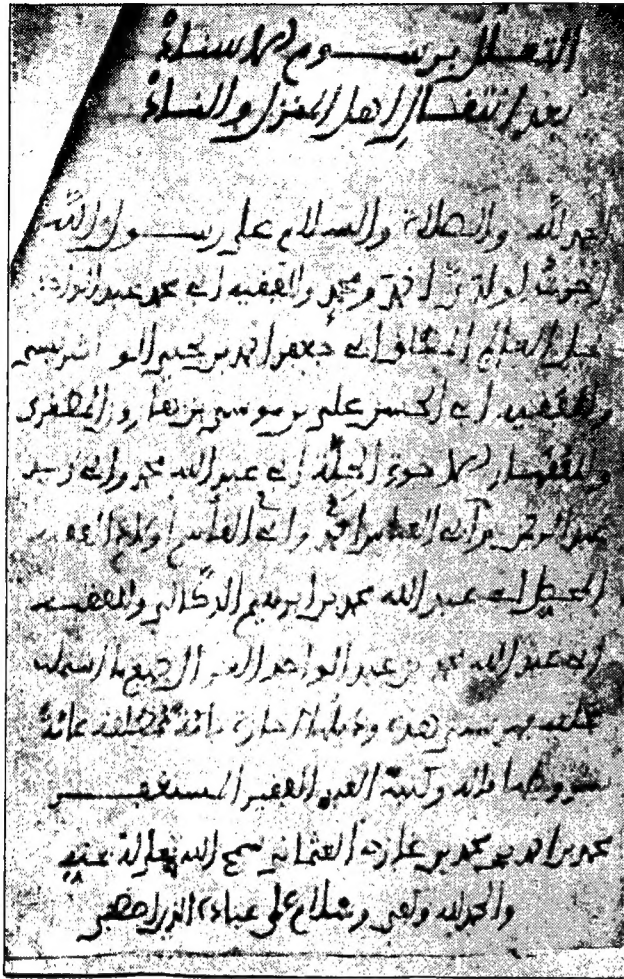 التعلل برسوم الاسناد
بعد انتقال اهل المنزل والناد
الحمد لله والصلاة والسلام على رسول الله
أجزت لولدي أحمد ومحمد وللفقيه ابي محمد عبد الواحد
نجل العالم ابي جعفر احمد بن يحيى الونشريسي
وللفقيه ابي الحسن علي بن موسى بن هارون المطغري
الجلة ابي عبد الله محمد وابي زيد
عبد الرحمن ابي العباس احمد وابي القاسم اولاد الفقيه
المحصل ابي عبد الله محمد بن ابرهيم الدكالي وللفقيه
ابي عبد الله محمد بن عبد الواحد جميع ما اشتملت
عليه فهرستي هذه وذيلها اجازة تامة مطلقة عامة
وكتبه العبد الفقير المستغفر
محمد بن احمد بن محمد بن غازي العثماني سمح الله تعالى له بمنه
والحمد لله وكفى وسلام على عباده الذين اصطفى